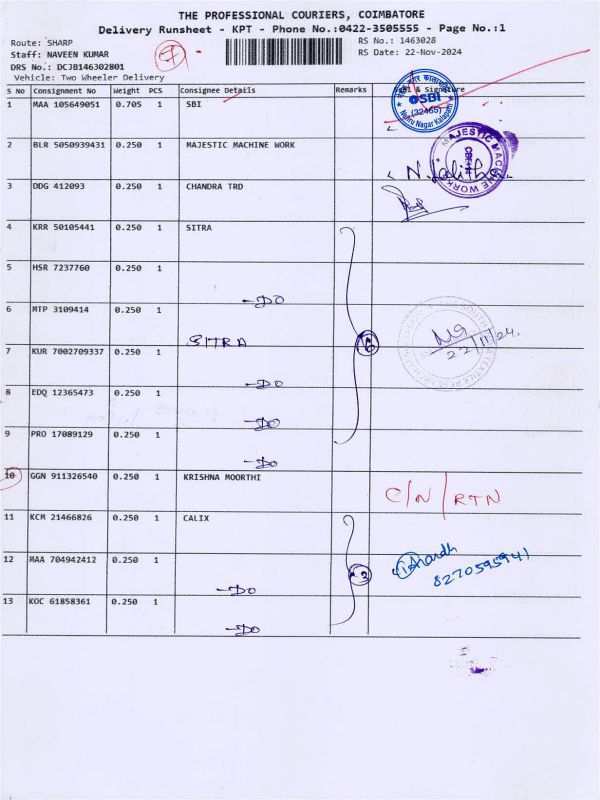 THE PROFESSIONAL COURIERS, COIMBATORE
Delivery Runsheet - KPT - Phone No.:0422-3505555 - Page No.:1
Route: SHARP
RS No.: 1463028
Staff: NAVEEN KUMAR
RS Date: 22-Nov-2024
DRS No.: DCJB146302801
Vehicle: Two Wheeler Delivery
S No Consignment No Weight PCS Consignee Details Remarks & Signature
1 MAA 105649051 0.705 1 SBI
SBI
(32465)
Nehru Nagar Kalapatti
2 BLR 5050939431 0.250 1 MAJESTIC MACHINE WORK
MAJESTIC MACHINE WORK
CBE
N. Lalitha
3 DDG 412093 0.250 1 CHANDRA TRD
4 KRR 50105441 0.250 1 SITRA
5 HSR 7237760 0.250 1
-DO
6 MTP 3109414 0.250 1
SITRA
6
22/11/24.
7 KUR 7002709337 0.250 1
-DO
8 EDQ 12365473 0.250 1
-DO
9 PRO 17089129 0.250 1
-DO
10 GGN 911326540 0.250 1 KRISHNA MOORTHI
C/N/RTN
11 KCM 21466826 0.250 1 CALIX
12 MAA 704942412 0.250 1
-DO
3
8270595941
13 KOC 61858361 0.250 1
-DO